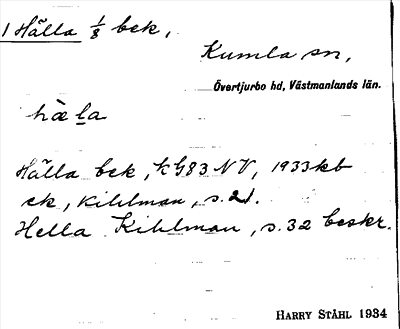 1 Hälla 1/8 bek,
Kumla sn,
Övertjurbo hd, Västmanlands län.
hæ̀ l̲a
Hälla bek, kG83NV, 1933kb
ek, Kihlman, s. 21.
Hella Kihlman, s. 32 beskr.
HARRY STÅHL 1934